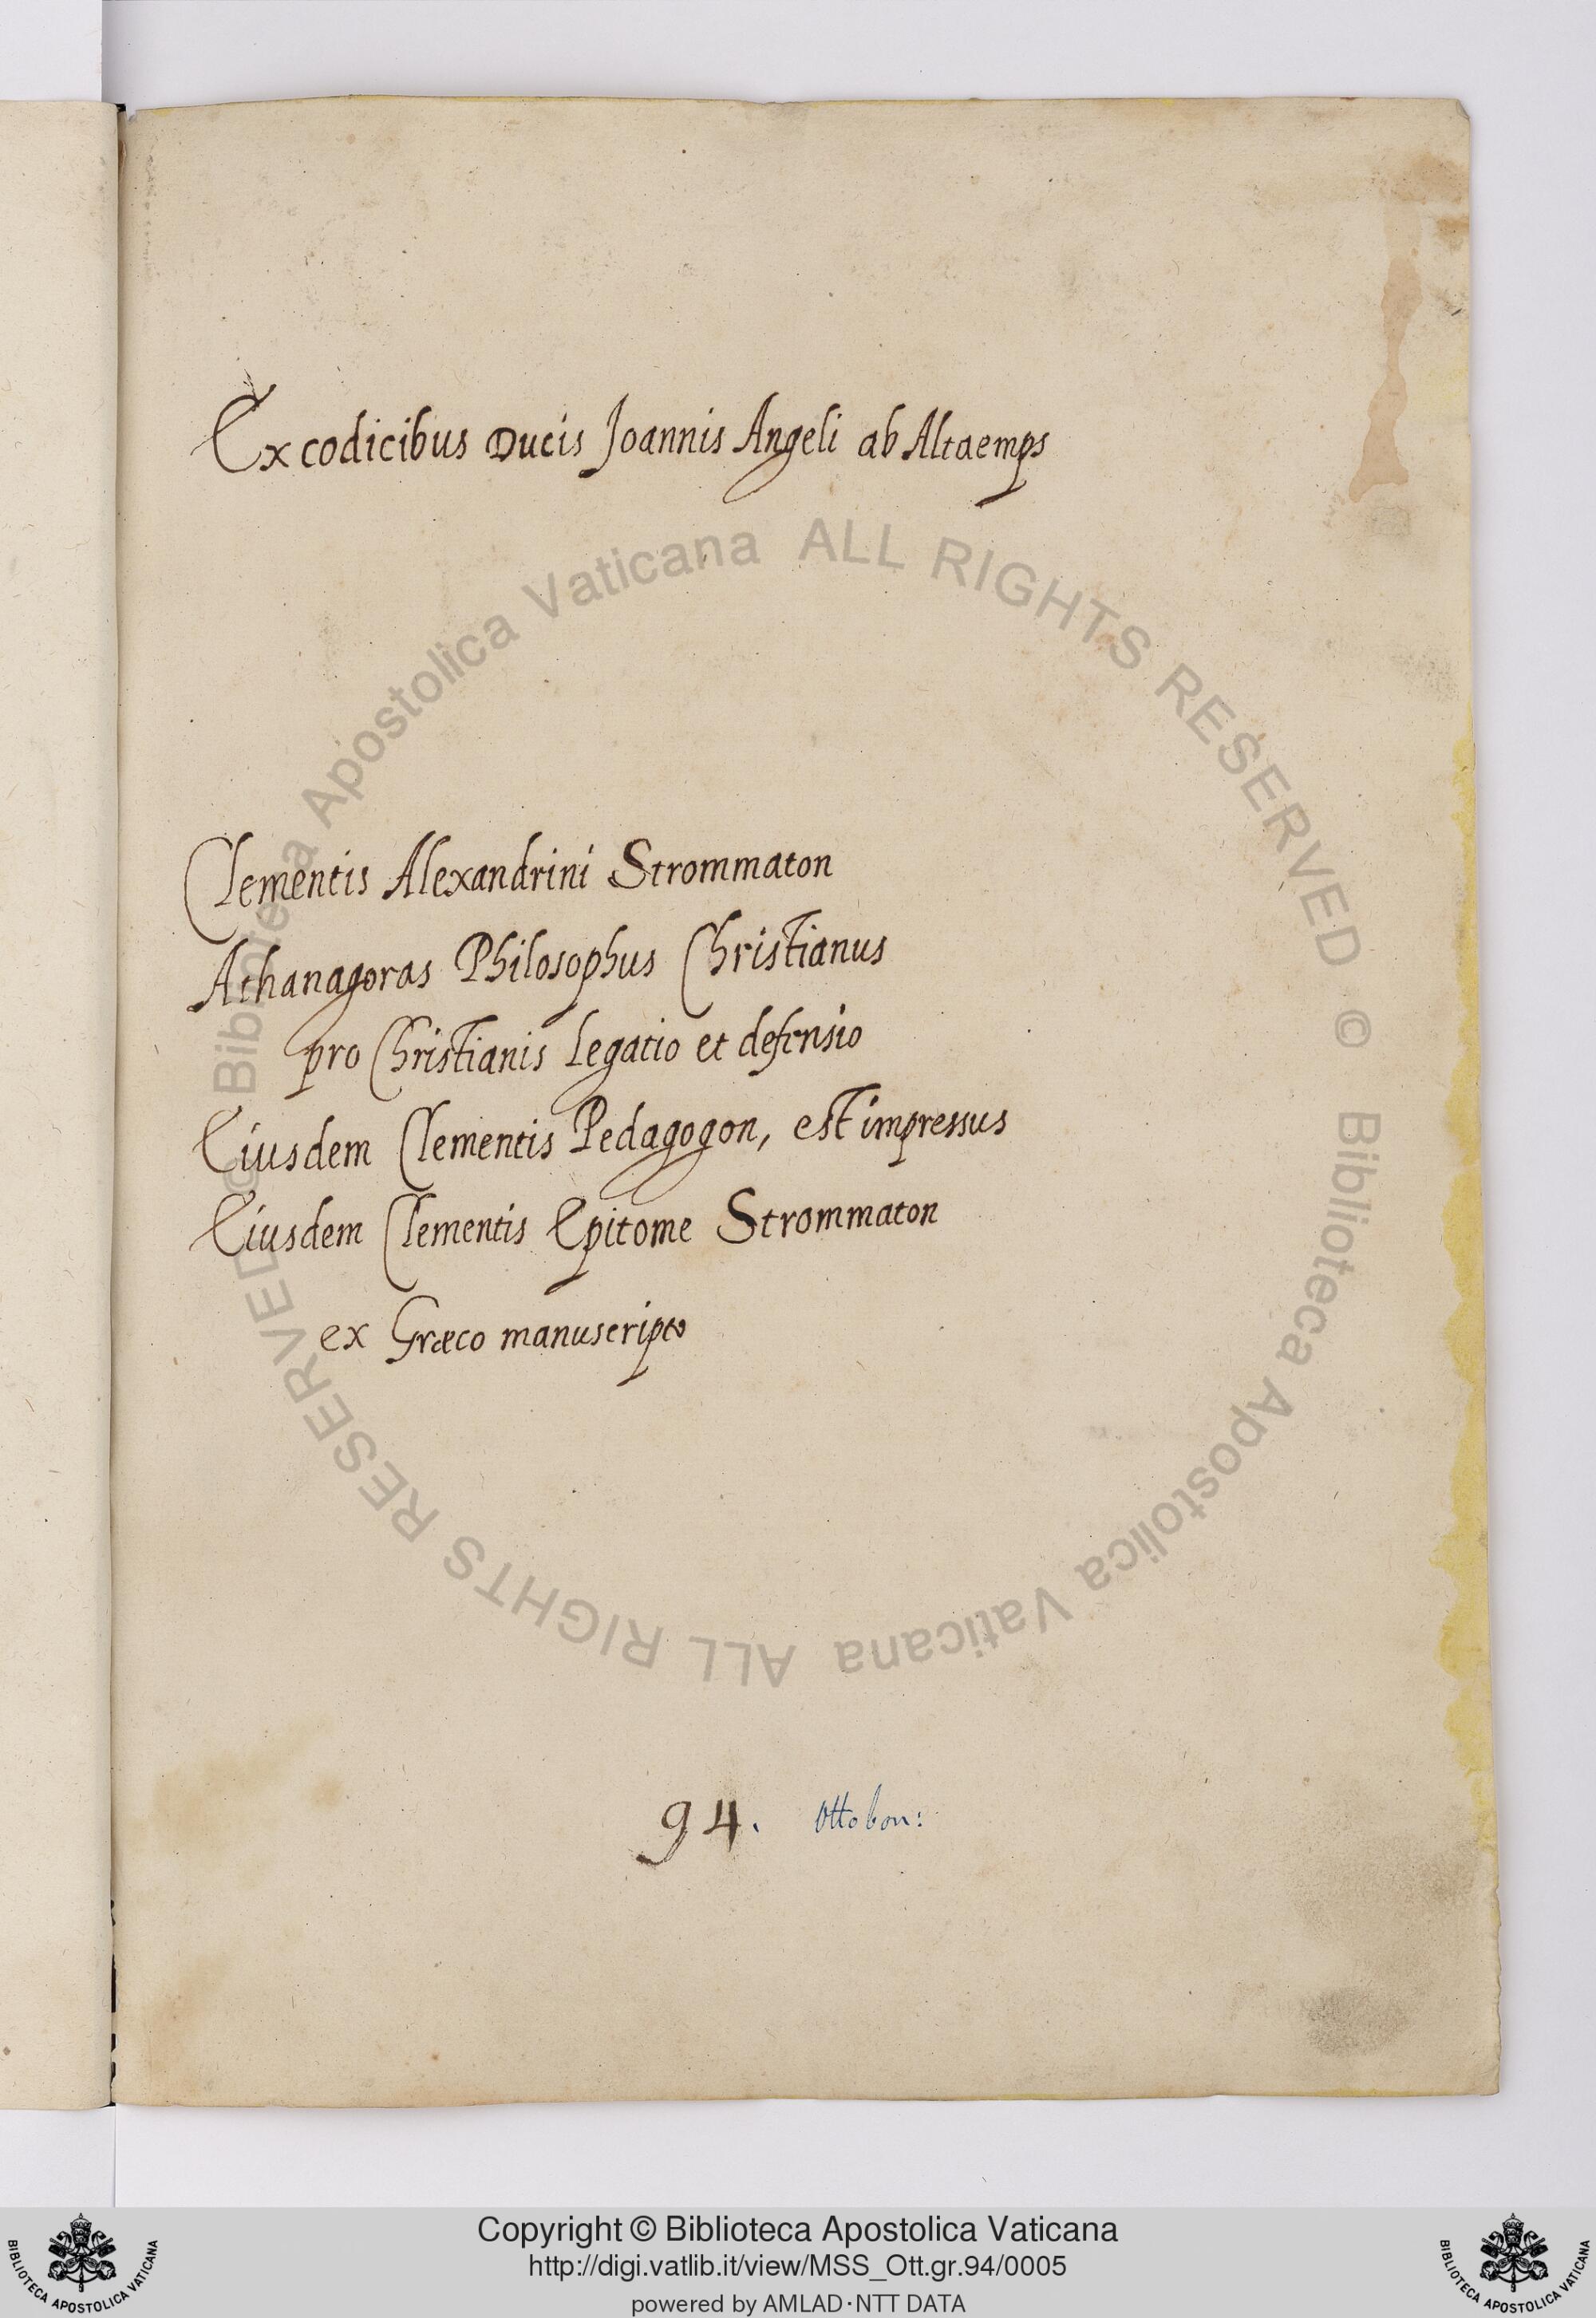 Ex codicibus Ducis Joannis Angeli ab Altaemps
Clementis Alexandrini Strommaton
Athanagoras Philosophus Christianus
pro Christianis legatio et defensio
Eiusdem Clementis Pedagogon, est impressus
Eiusdem Clementis Epitome Strommaton
ex Græco manuscripto
94. Ottobon:
© Biblioteca Apostolica Vaticana ALL RIGHTS RESERVED
© Biblioteca Apostolica Vaticana ALL RIGHTS RESERVED
Copyright © Biblioteca Apostolica Vaticana
http://digi.vatlib.it/view/MSS_Ott.gr.94/0005
powered by AMLAD·NTT DATA
BIBLIOTECA APOSTOLICA VATICANA
BIBLIOTECA APOSTOLICA VATICANA